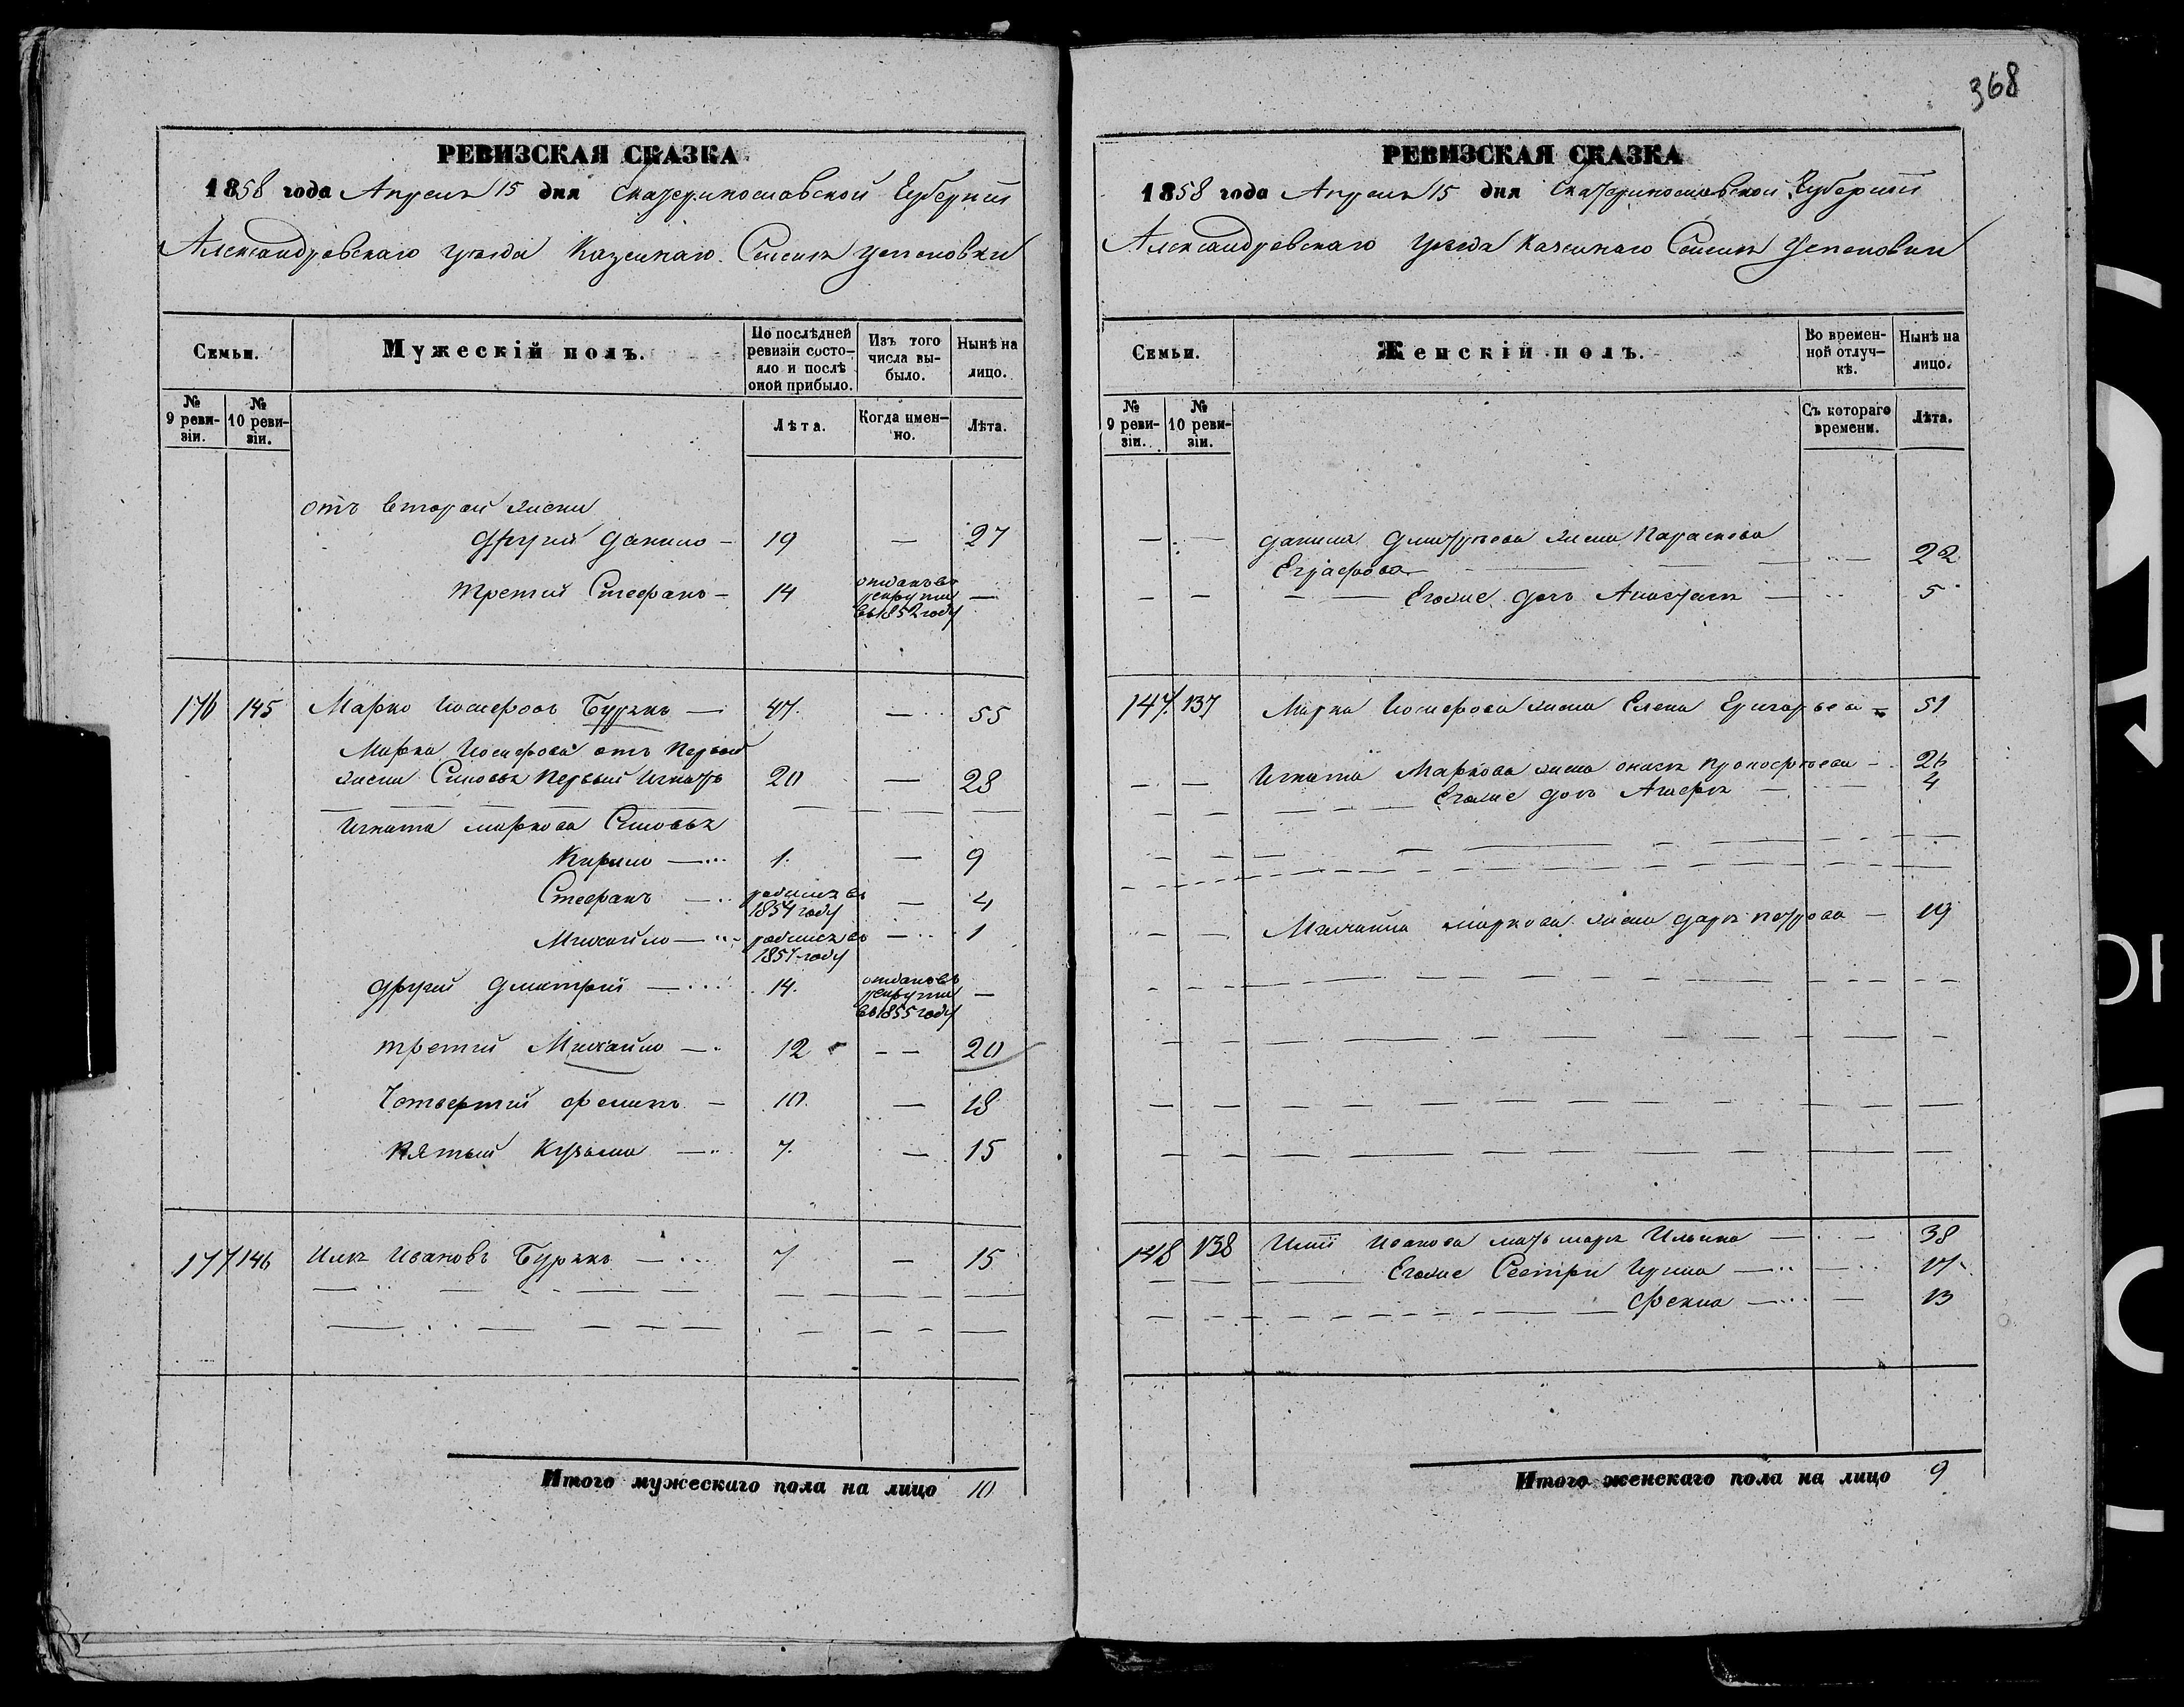 368
РЕВИЗСКАЯ СКАЗКА
1858 года Апреля 15 дня Екатеринославской Губернии
Александровскаго уезда Казеннаго Селенія Успеновки
Семьи.
Мужескій полъ.
По послѣдней ревизіи состо-
яло и послѣ
оной прибыло.
Изъ того
числа вы-
было.
Нынѣ на
лицо.
№
9 реви-
зіи.
№
10 реви-
зіи.
Лѣта.
Когда имен-
но.
Лѣта.
отъ второй жены
другий Данило — 19 — 27
третий Стефанъ — 14 отданъ въ
рекруты
въ 1852 году —
176 145 Марко Иосифовъ Бурякъ — 47. — 55
Марка Иосифова отъ первой
жены Сыновья первый Игнатъ 20 — 28
Игната Маркова Сыновья
Кирило — 1. — 9
Стефанъ — родился въ
1854 году — 4
Михайло — родился въ
1857 году — 1
другий Дмитрий — 14. отданъ въ
рекруты
въ 1855 году —
третий Михайло — 12 — — 20
Четвертий — 10. — 18
пятый Кузьма — 7. — 15
177 146 Илья Ивановъ Бурякъ — 7 — 15
Итого мужескаго пола на лицо 10
РЕВИЗСКАЯ СКАЗКА
1858 года Апреля 15 дня Екатеринославской Губернии
Александровскаго уезда Казеннаго Селенія Успеновки
Семьи.
Женскій полъ.
Во времен-
ной отлуч-
кѣ.
Нынѣ на
лицо.
№
9 реви-
зіи.
№
10 реви-
зіи.
Съ котораго
времени.
Лѣта.
— — Данила Дмитриева жена Параскева
— 22
— — Егоже дочь Анастасія — 5
147. 137 Марка Иосифова жена Елена Григорьева — 51
— — Игната Маркова жена Прокофьева — 26
— — Егоже дочь — 4
— — Михайла Маркова жена Дарья Петрова — 19
148 138 Ильи Иванова мать Марья Ильина — 38
Егоже Сестры Ирина — 17
Фекла — 13
Итого женскаго пола на лицо 9